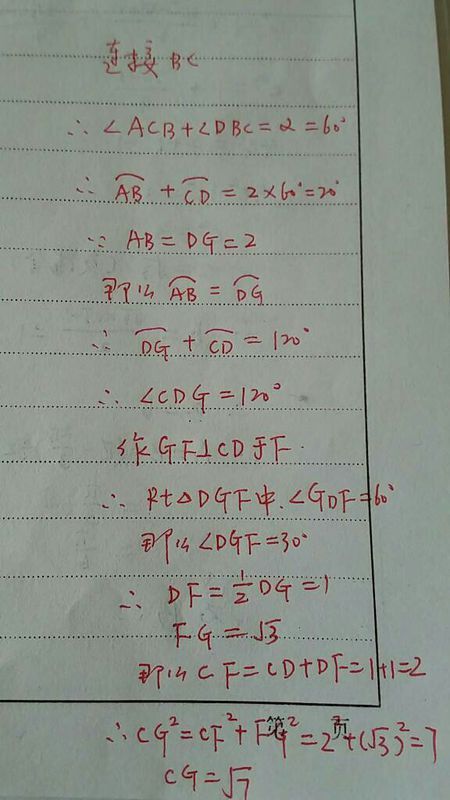 连接BC
∴ ∠ACB+∠DBC=α=60°
∴ AB⌒ + CD⌒ = 2×60°=20°
∵ AB=DG=2
那么 AB⌒ = DG⌒
∴ DG⌒ + CD⌒ = 120°
∴ ∠CDG=120°
作GF⊥CD于F.
∴ Rt△DGF中.∠GDF=60°
那么∠DGF=30°
∴ DF=1/2DG=1
FG=√3
那么CF=CD+DF=1+1=2
∴ CG²=CF²+FG²=2²+(√3)²=7
第 页
CG=√7